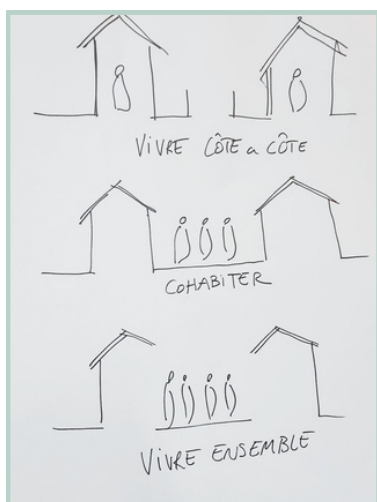 VIVRE CÔTE a CÔTE
COHABITER
VIVRE ENSEMBLE